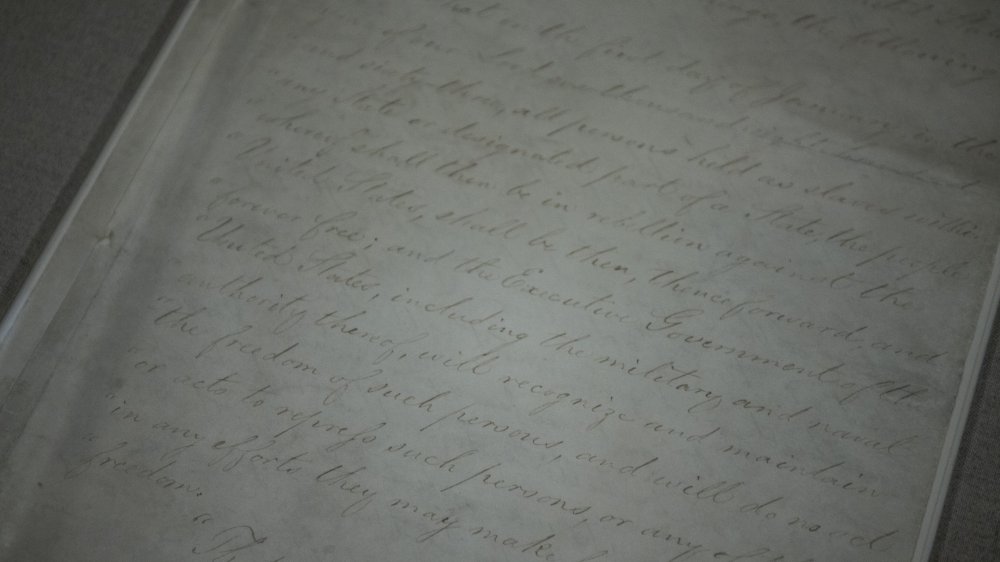 the following
"that on the first day of January, in the
"of our Lord one thousand eight hundred and
"and sixty-three, all persons held as slaves within
"any State or designated part of a State, the people
"whereof shall then be in rebellion against the
"United States, shall be then, thenceforward, and
"forever free; and the Executive Government of the
"United States, including the military and naval
"authority thereof, will recognize and maintain
"the freedom of such persons, and will do no act
"or acts to repress such persons, or any of
"in any efforts they may make
"freedom.
"